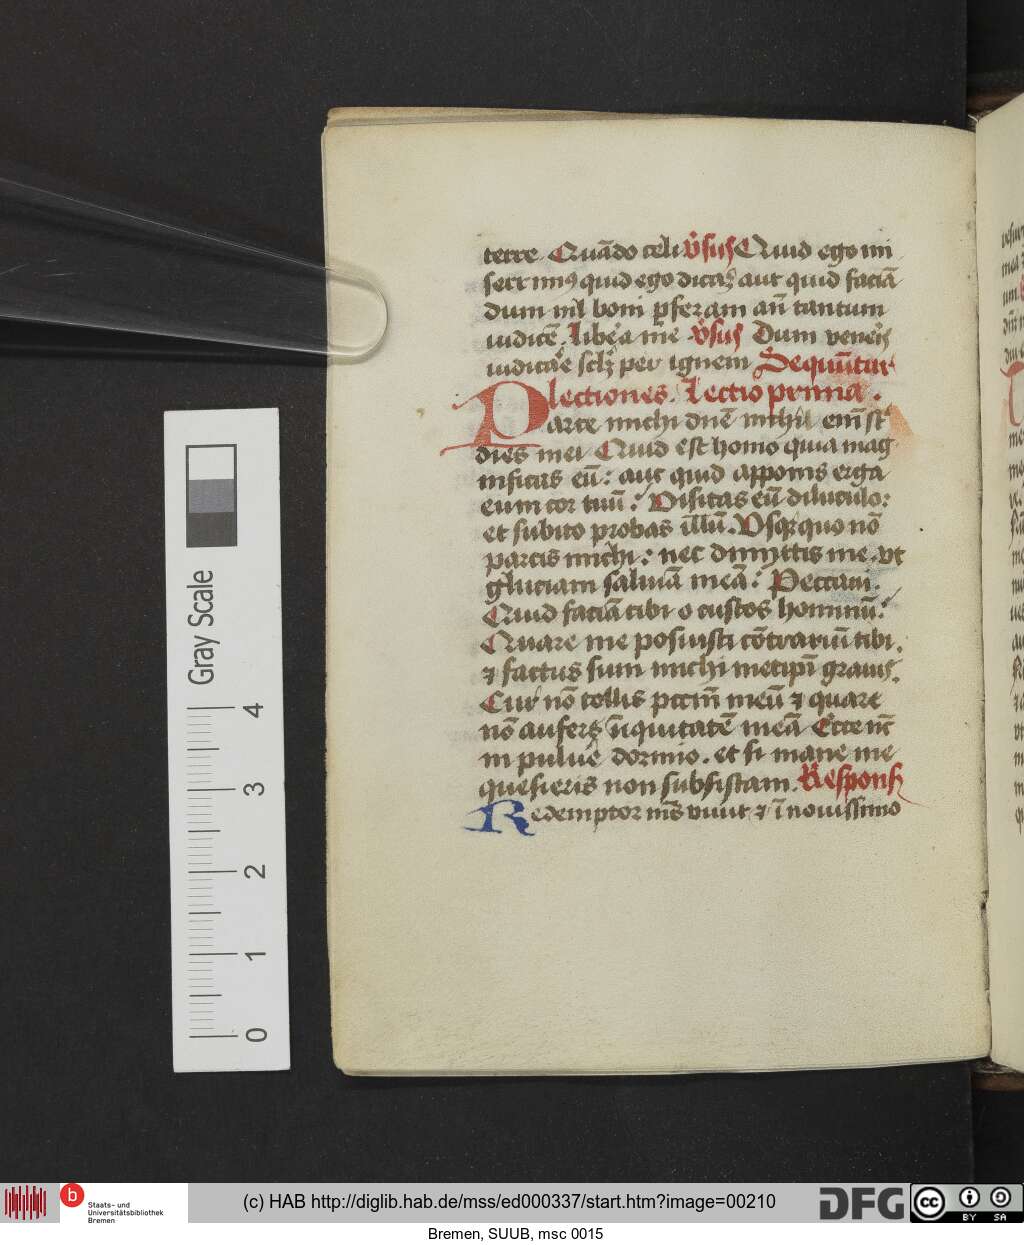 terre Quādo celi v̄sus Quid ego mi
serrimꝰ quid ego dicā aut quid faciā
dum nil boni pferam añ tantum
iudicē. libēa me v̄sus Dum veneris
iudicare sclm per ignem Sequūtur
lectiones. Lectio prima.
Parce michi dñe nichil eñi st̄
dies mei Quid est homo quia mag
nificas eū: aut quid apponis erga
eum cor tuū: Visitas eū diluculo:
et subito probas illū. Vsqꝫ quo nō
parcis michi: nec dimittis me. vt
glutiam saliuā meā: Peccaui.
Quid faciā tibi o custos hominū:
Quare me posuisti cōtrariū tibi.
⁊ factus sum michi metipī grauis.
Cur nō tollis pccm̄ meū ⁊ quare
nō aufers īiquitatē meā Ecce nc̄
in puluēe dormio. et si mane me
quesieris non subsistam. Respons
Redemptor mꝰs viuit ⁊ ī nouissimo
Gray Scale
4
3
2
1
0
b Staats- und
Universitätsbibliothek
Bremen
(c) HAB http://diglib.hab.de/mss/ed000337/start.htm?image=00210
DFG
cc BY SA
Bremen, SUUB, msc 0015